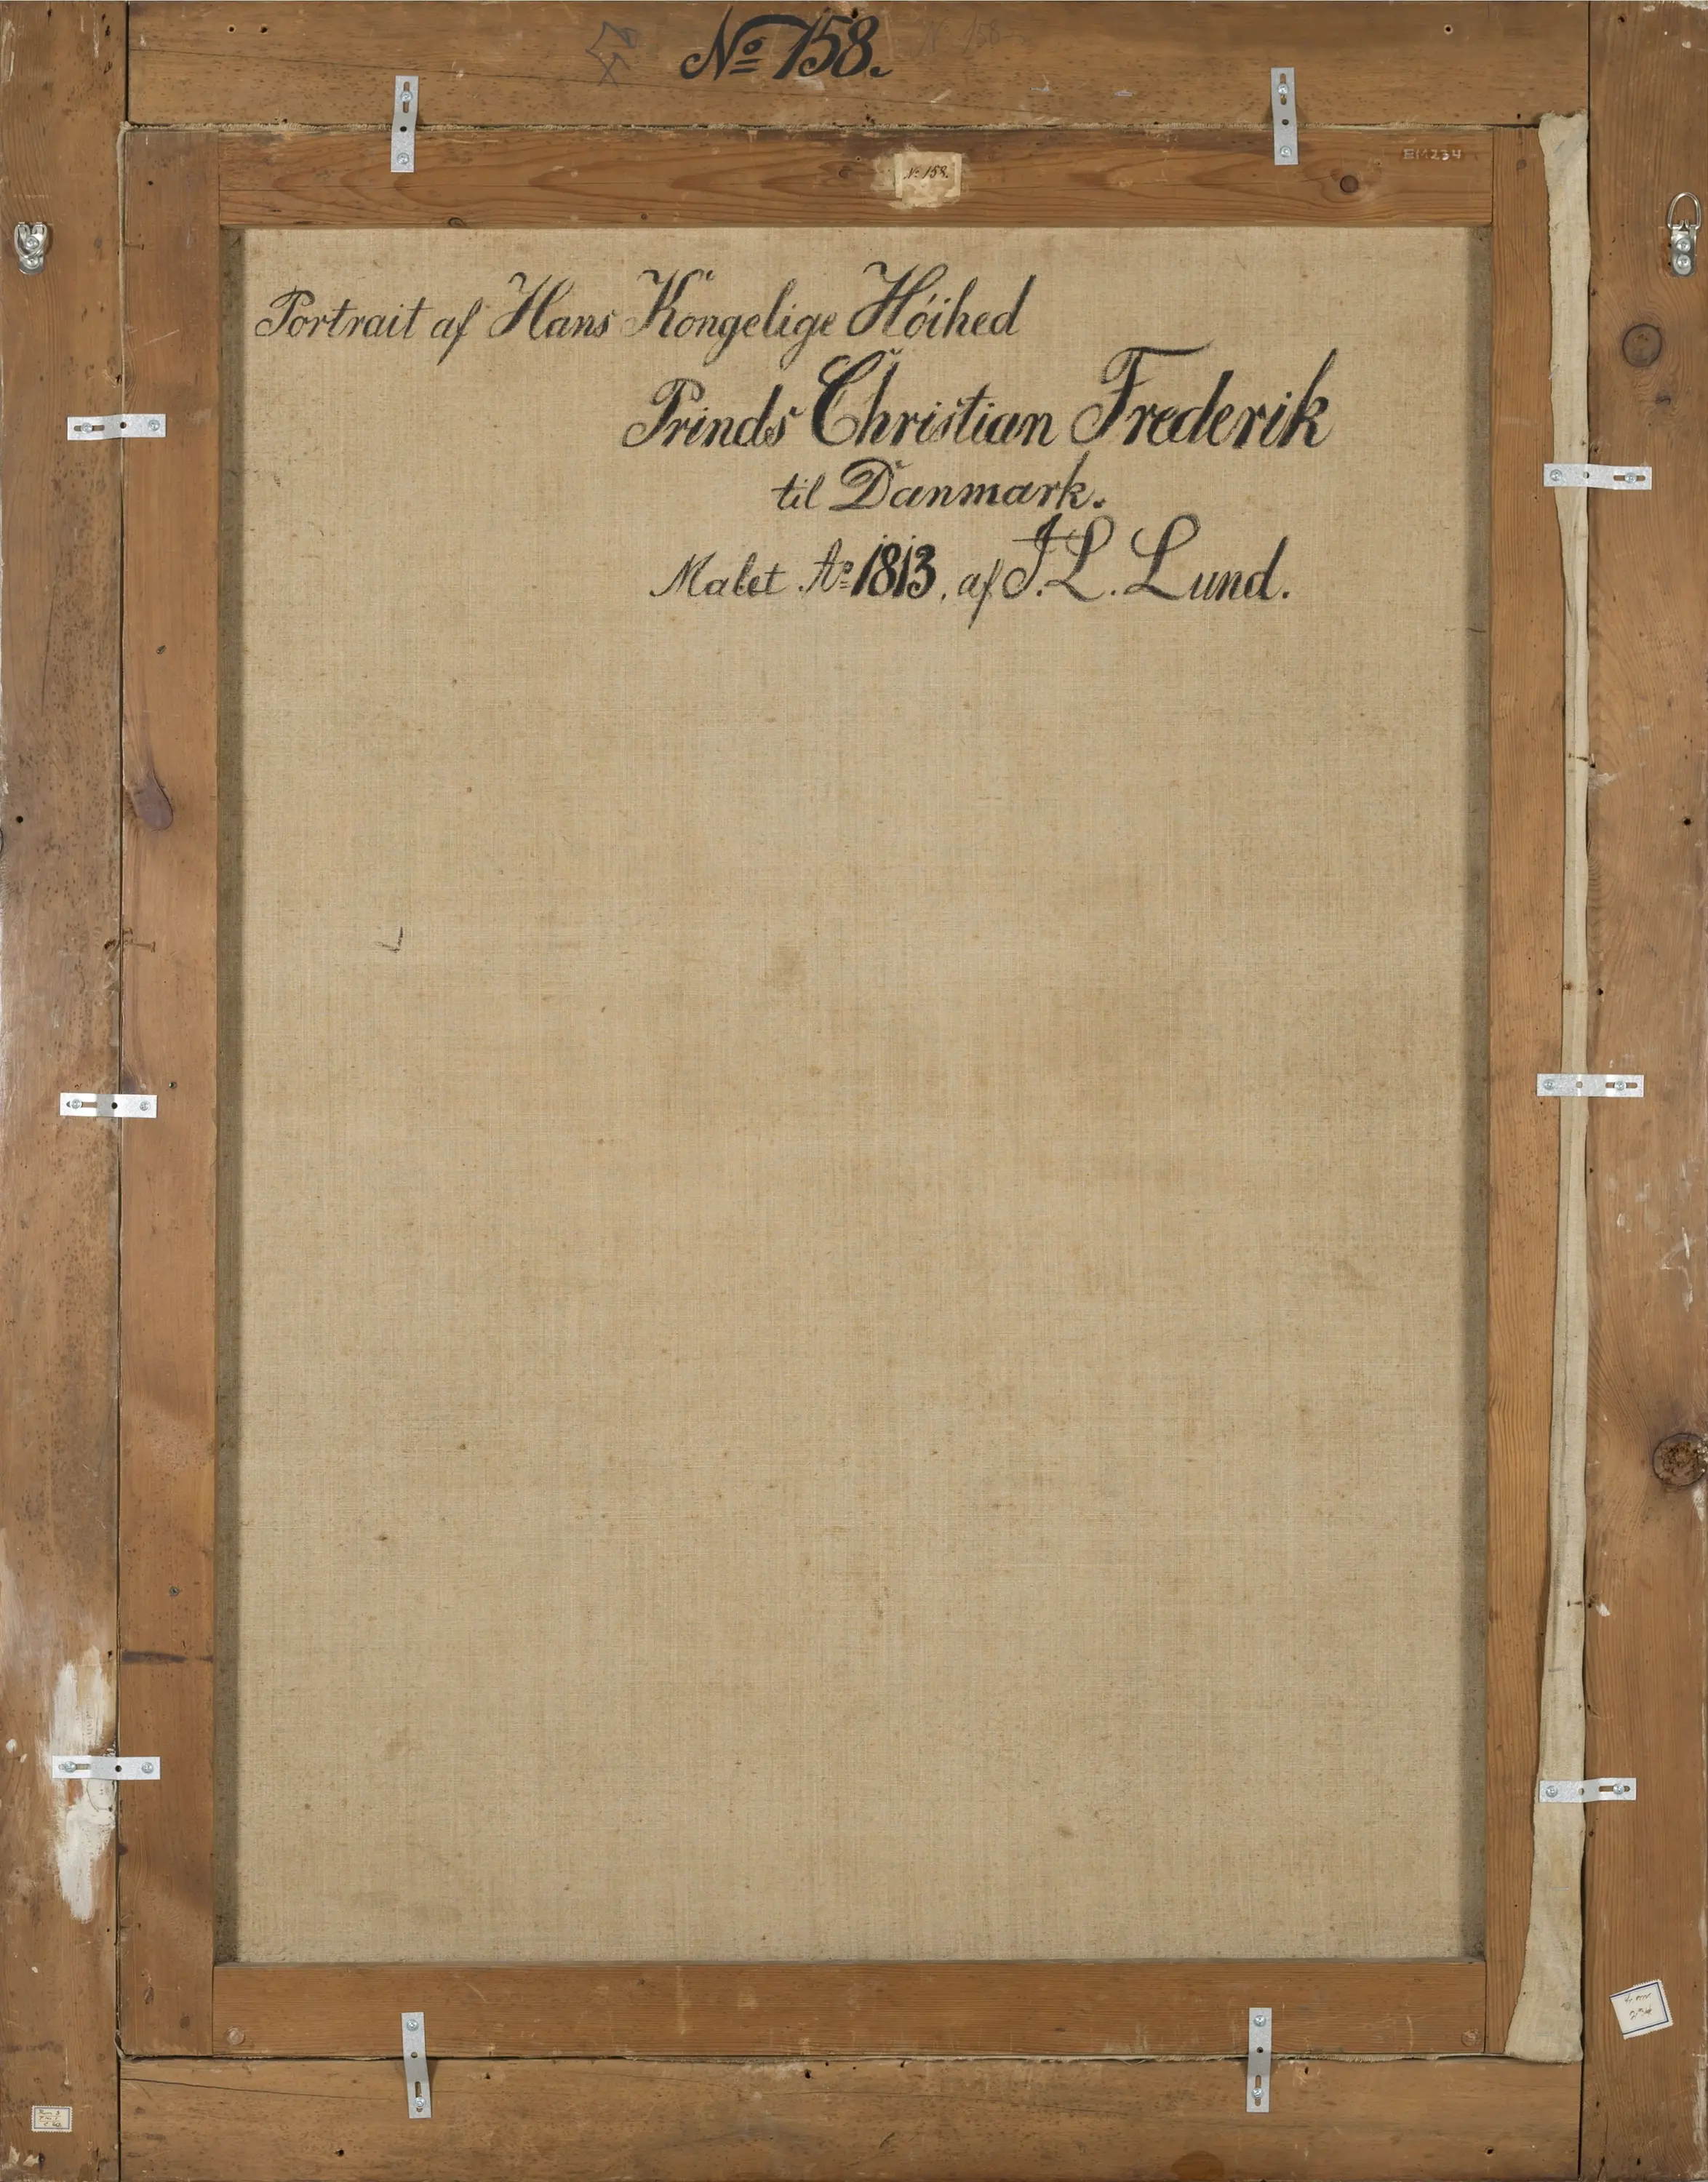 No 158.
No 158.
EM234
Portrait af Hans Kongelige Höihed
Prinds Christian Frederik
til Danmark.
Malet Ao 1813, af J. L. Lund.
234